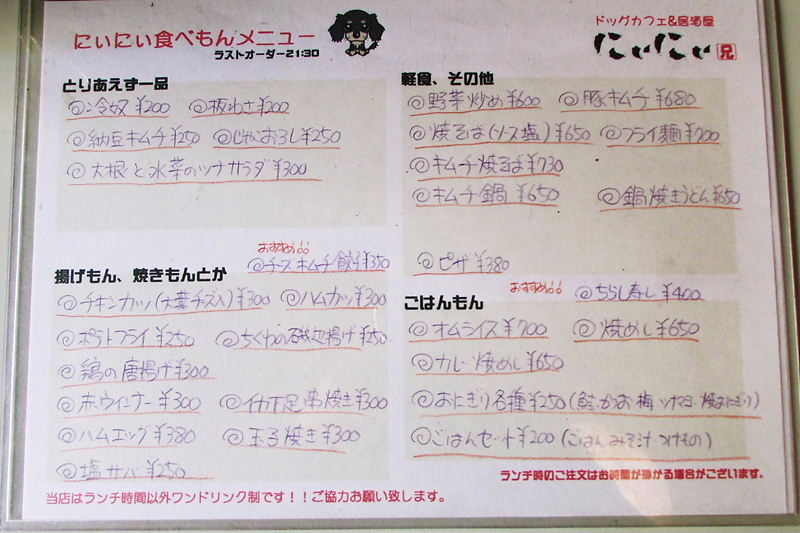 にぃにぃ食べもんメニュー
ラストオーダー21:30
ドッグカフェ&居酒屋
にぃにぃ 兄
とりあえず一品
◎冷奴¥200 ◎板わさ¥200
◎納豆キムチ¥250 ◎じゃがおろし¥250
◎大根と水菜のツナサラダ¥300
おすすめ!!
◎チーズキムチ餃子¥350
揚げもん、焼きもんとか
◎チキンカツ(大葉チーズ入)¥300 ◎ハムカツ¥300
◎ポテトフライ¥250 ◎ちくわの磯辺揚げ¥250
◎鶏の唐揚げ¥300
◎赤ウインナー¥300 ◎イカ下足串焼き¥300
◎ハムエッグ¥380 ◎玉子焼き¥300
◎塩サバ¥250
軽食、その他
◎野菜炒め¥600 ◎豚キムチ¥680
◎焼そば(ソース塩)¥650 ◎フライ麺¥700
◎キムチ焼そば¥730
◎キムチ鍋¥650 ◎鍋焼きうどん¥650
◎ピザ¥380
おすすめ!!
◎ちらし寿し¥400
ごはんもん
◎オムライス¥700 ◎焼めし¥650
◎カレー焼めし¥650
◎おにぎり各種¥250(鮭・かつお・梅・ツナマヨ・焼おにぎり)
◎ごはんセット¥200(ごはん みそ汁 つけもの)
ランチ時のご注文はお時間が掛かる場合がございます。
当店はランチ時間以外ワンドリンク制です!!ご協力お願い致します。